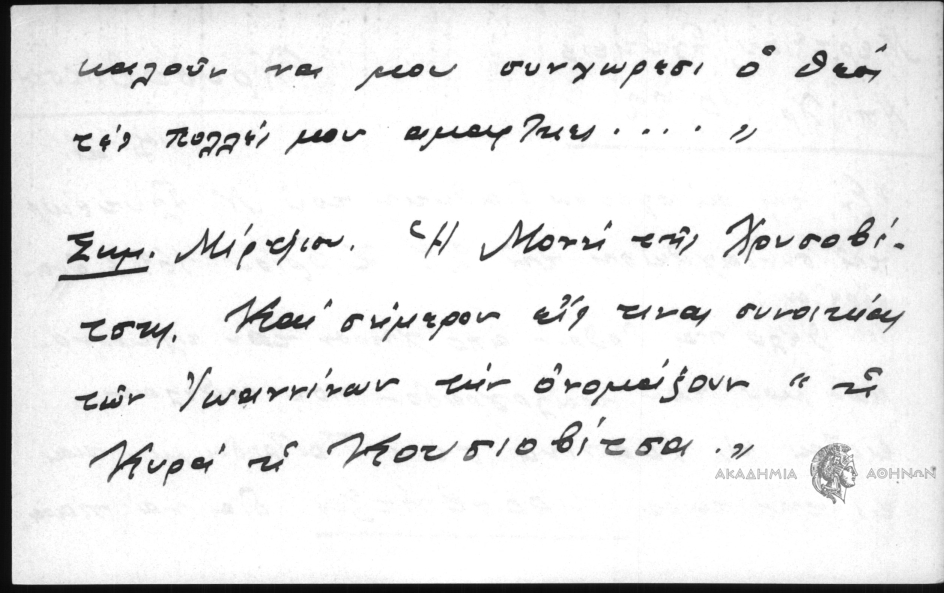 καλοῦν να μου συνχωρεσι ὁ θεός
τές πολλές μου αμαρτιες . . . . "
Σημ. Μέρτζιου. Ἡ Μονή τῆς Χρυσοβί-
τσης. Καί σήμερον εἴς τινας συνοικίας
τῶν Ἰωαννίνων τήν ὀνομάζουν " τῆ
Κυρά τῆ Κουσιοβίτσα . "
ΑΚΑΔΗΜΙΑ ΑΘΗΝΩΝ